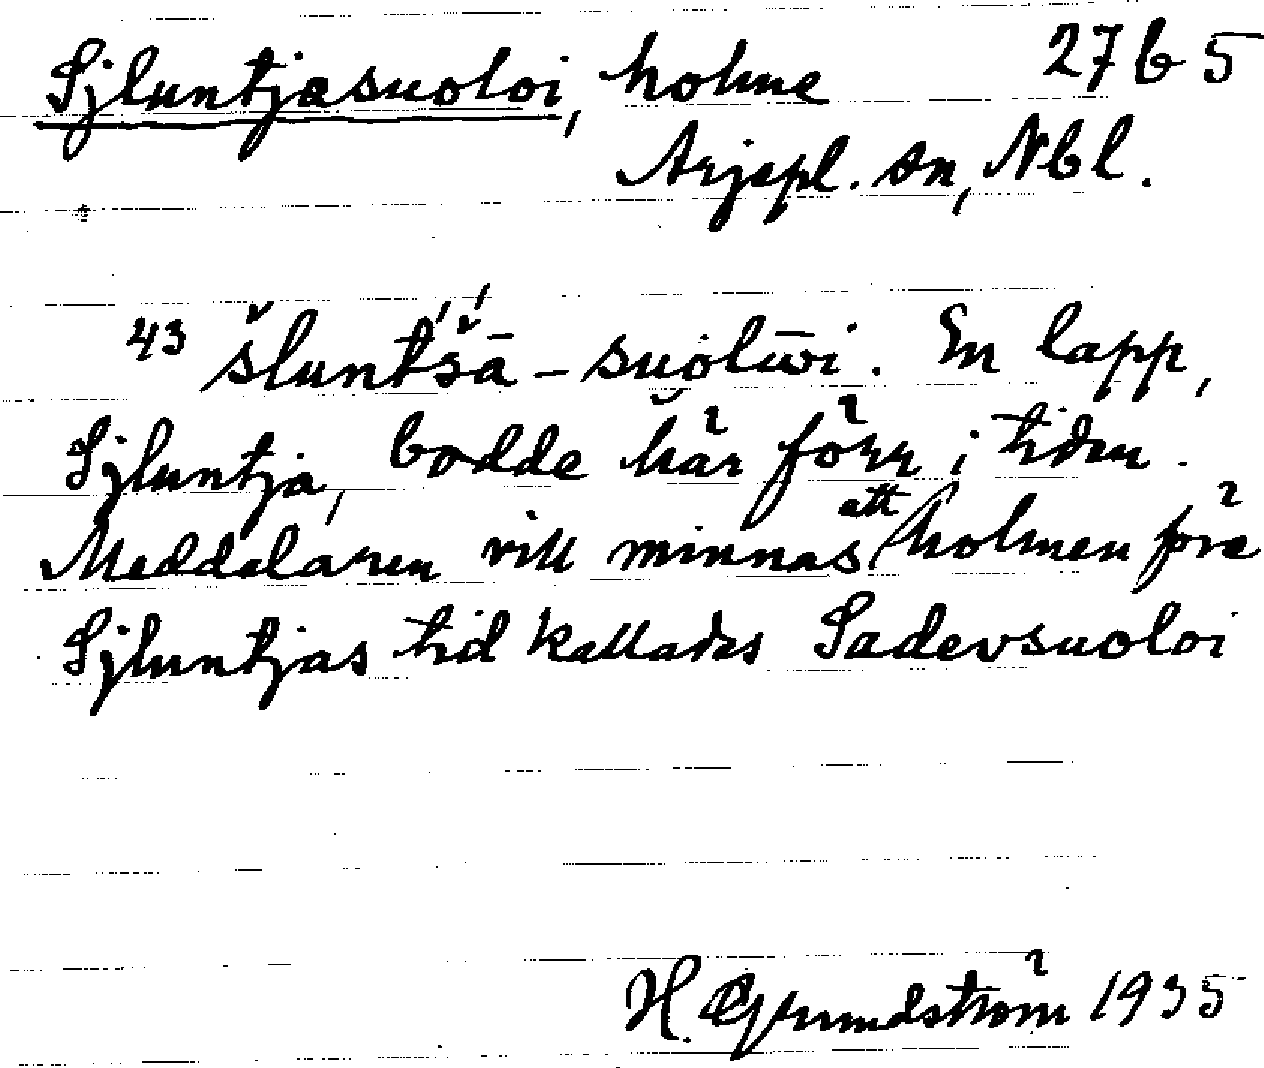 Sjluntjasuoloi, holme 27 b 5
Arjepl. sn, Nbl.
43 šlunt́š́ā - suo̭lu̅i. En lapp,
Sjluntja, bodde här förr i tiden.
Meddelaren vill minnas att holmen före
Sjluntjas tid kallades Sadevsuoloi
H. Grundström 1935